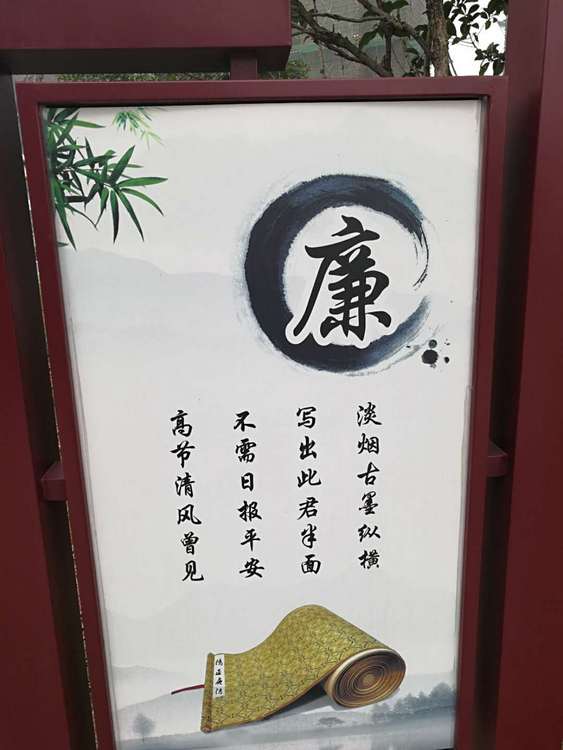 廉
淡烟古墨纵横
写出此君半面
不需日报平安
高节清风曾见